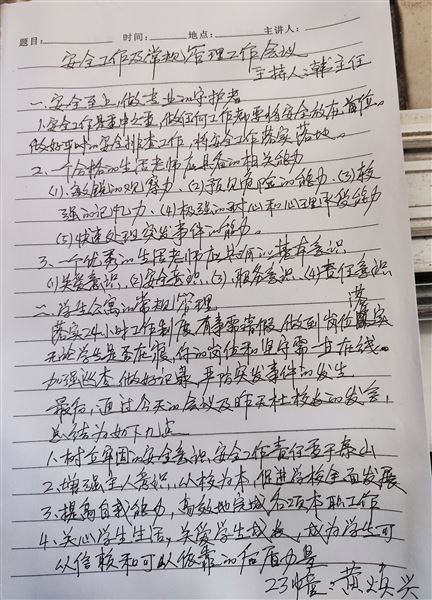 题目: 时间: 地点: 主讲人:
安全工作及常规管理工作会议
主持人:韩主任
一、安全至上,做专业的守护者
1.安全工作是重中之重,做任何工作都要将安全放在首位。
做好平时的安全排查工作,将安全工作落实落地。
2、一个合格的生活老师应具备的相关能力
(1)、敏锐的观察力、(2)预见危险的能力、(3)较
强的记忆力、(4)极强的耐心和心理承受能力
(5)快速处理突发事件的能力。
3、一个优秀的生活老师应具有的基本意识
(1)关爱意识、(2)安全意识、(3)、服务意识、(4)责任意识
二、学生公寓的常规管理
落实24小时工作制度,有事需请假,做到岗位落实
无论学生是否在寝,你的岗位和坚守需一直在线。
加强巡查,做好记录,严防突发事件的发生
最后,通过今天的会议及昨天杜校长的发言,
总结为如下几点
1、树立牢固的安全意识,安全工作责任重于泰山
2、增强主人意识,以校为本,促进学校全面发展
3、提高自我能力,高效地完成各项本职工作
4、关心学生生活,关爱学生成长,成为学生可
以信赖和可以依靠的后盾力量
23幢:黄焕兴